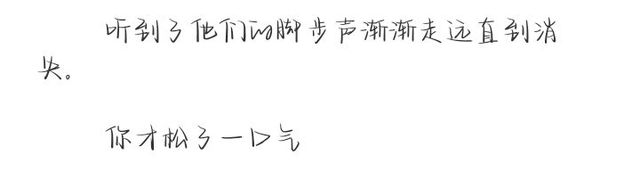 听到了他们的脚步声渐渐走远直到消
失。
你才松了一口气